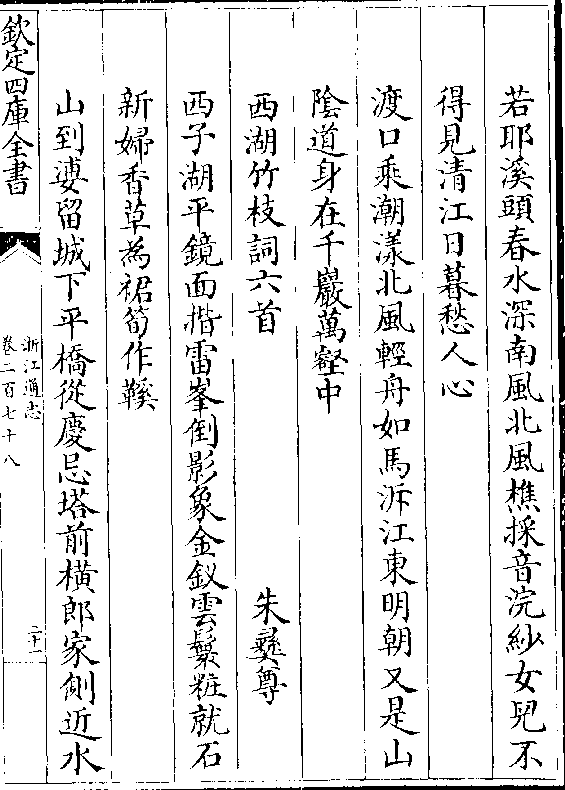 若耶溪頭春水深南風北風樵採音浣紗女兒不
得見清江日暮愁人心
渡口乘潮漾北風輕舟如馬泝江東明朝又是山
陰道身在千巖萬壑中
西湖竹枝詞六首　朱彝尊
西子湖平鏡面揩雷峯倒影象金釵雲鬟粧就石
新婦香草為裙筍作鞵
山到婆留城下平橋從慶忌塔前橫郎家側近水
欽定四庫全書
浙江通志
卷二百七十八
二十一